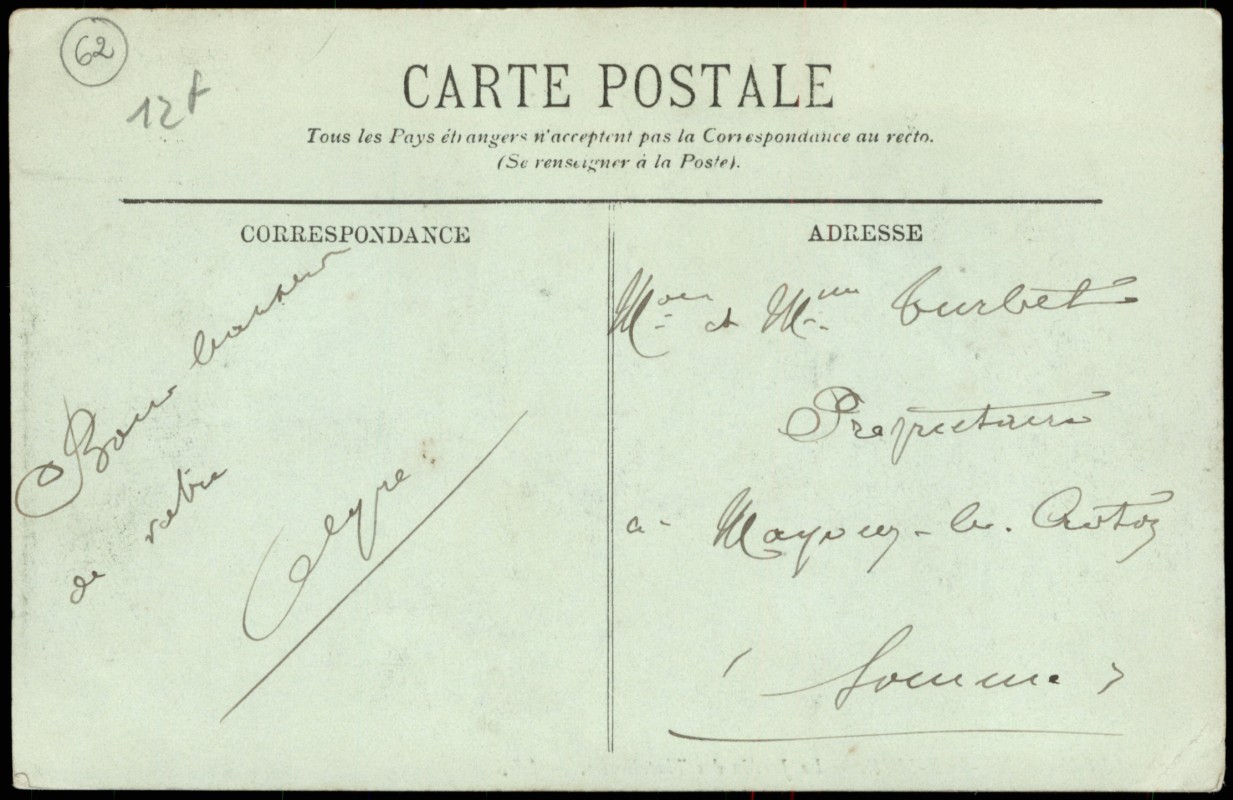 62
12f
CARTE POSTALE
Tous les Pays étrangers n'acceptent pas la Correspondance au recto.
(Se renseigner à la Poste).
CORRESPONDANCE
ADRESSE
Bons baisers
de votre
Mon et Mme Turbet
Propriétaire
a-
(Somme)